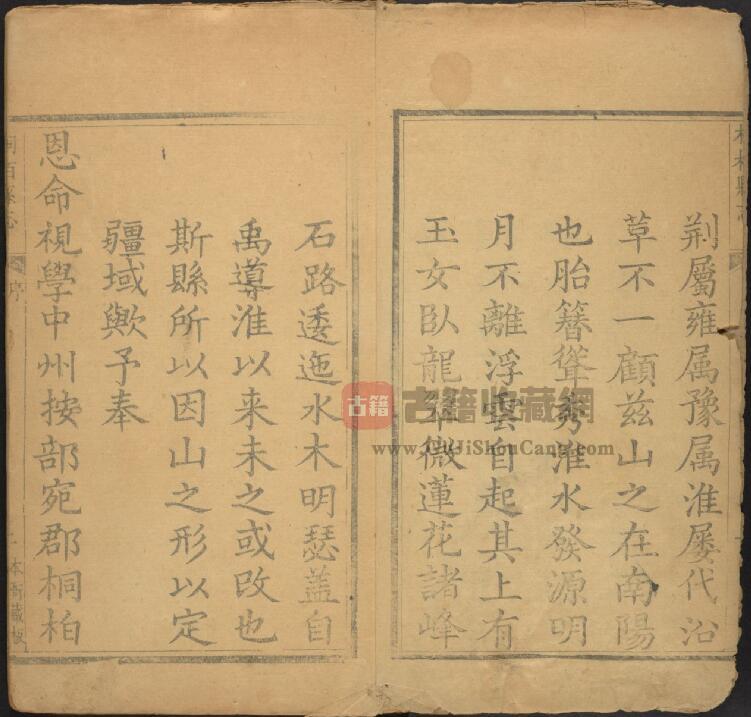 荆屬雍属豫属淮屡代沿
草不一顧茲山之在南陽
也胎簪聳秀淮水發源明
月不離浮雲自起其上有
玉女臥龍翠微蓮花諸峰
石路逶迤水木明瑟盖自
禹導淮以来未之或改也
斯縣所以因山之形以定
疆域歟予奉
恩命視學中州按部宛郡桐柏
桐柏縣志
序
本衙藏板
古籍
古籍收藏網
www.GuJiShouCang.com